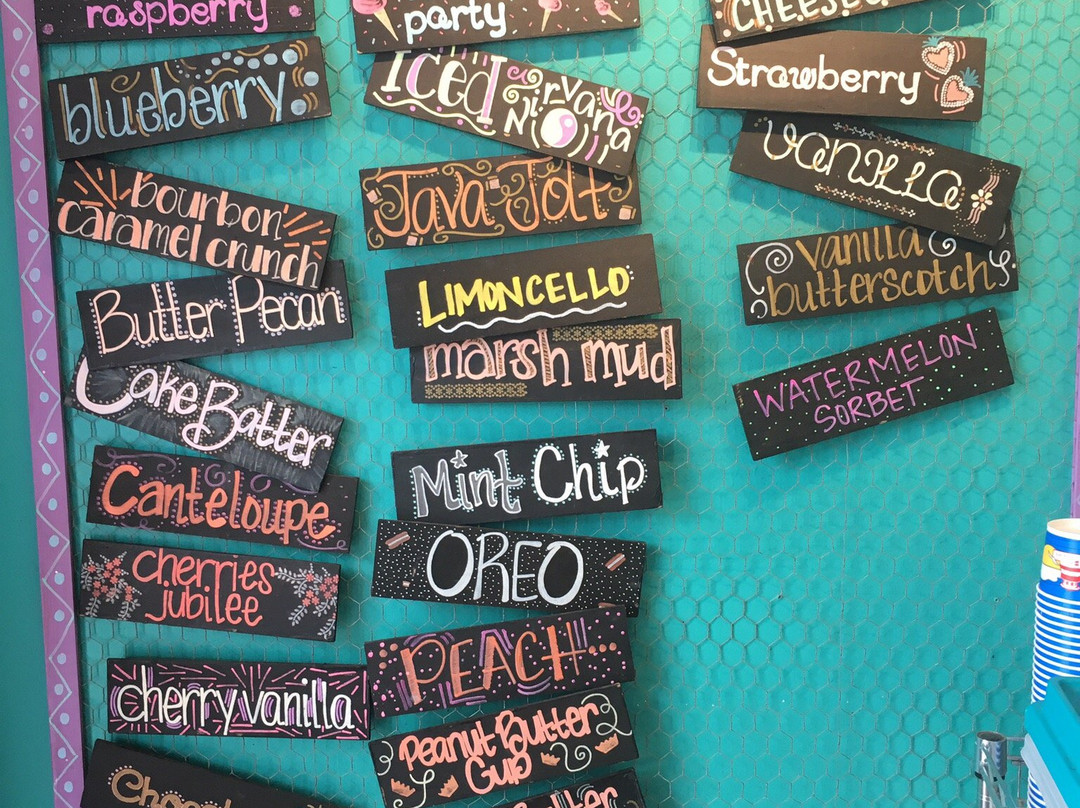 raspberry
blueberry
bourbon
caramel crunch
Butter Pecan
Cake Batter
Canteloupe
cherries
jubilee
cherry vanilla
party
Iced Nirvana
Java Jolt
LIMONCELLO
marsh mud
Mint Chip
OREO
PEACH...
Peanut Butter
Cup
Strawberry
vanilla
vanilla
butterscotch
WATERMELON
SORBET